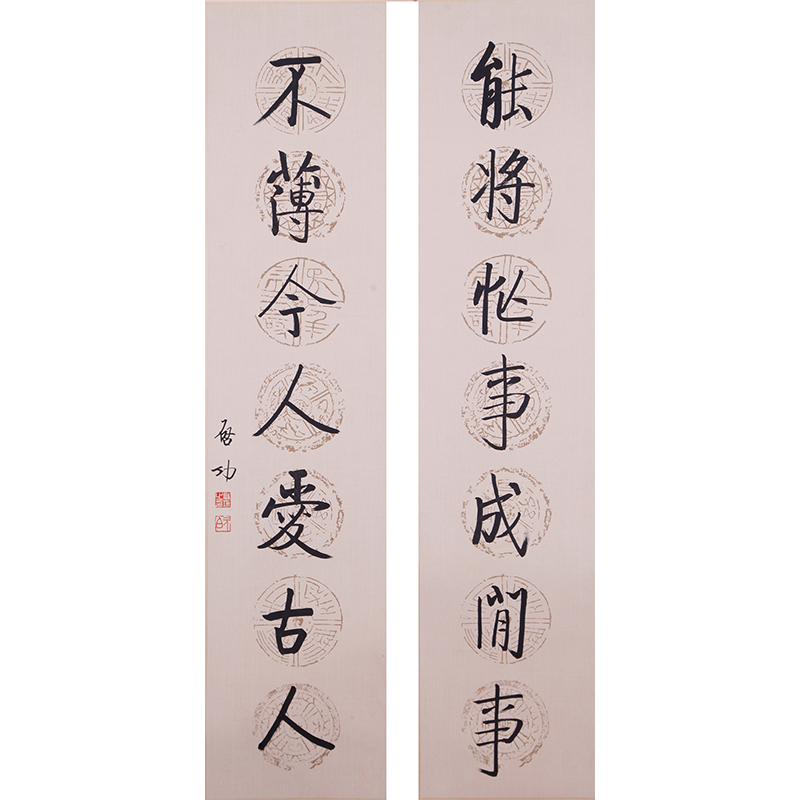 能将忙事成閒事
不薄今人愛古人
啟功